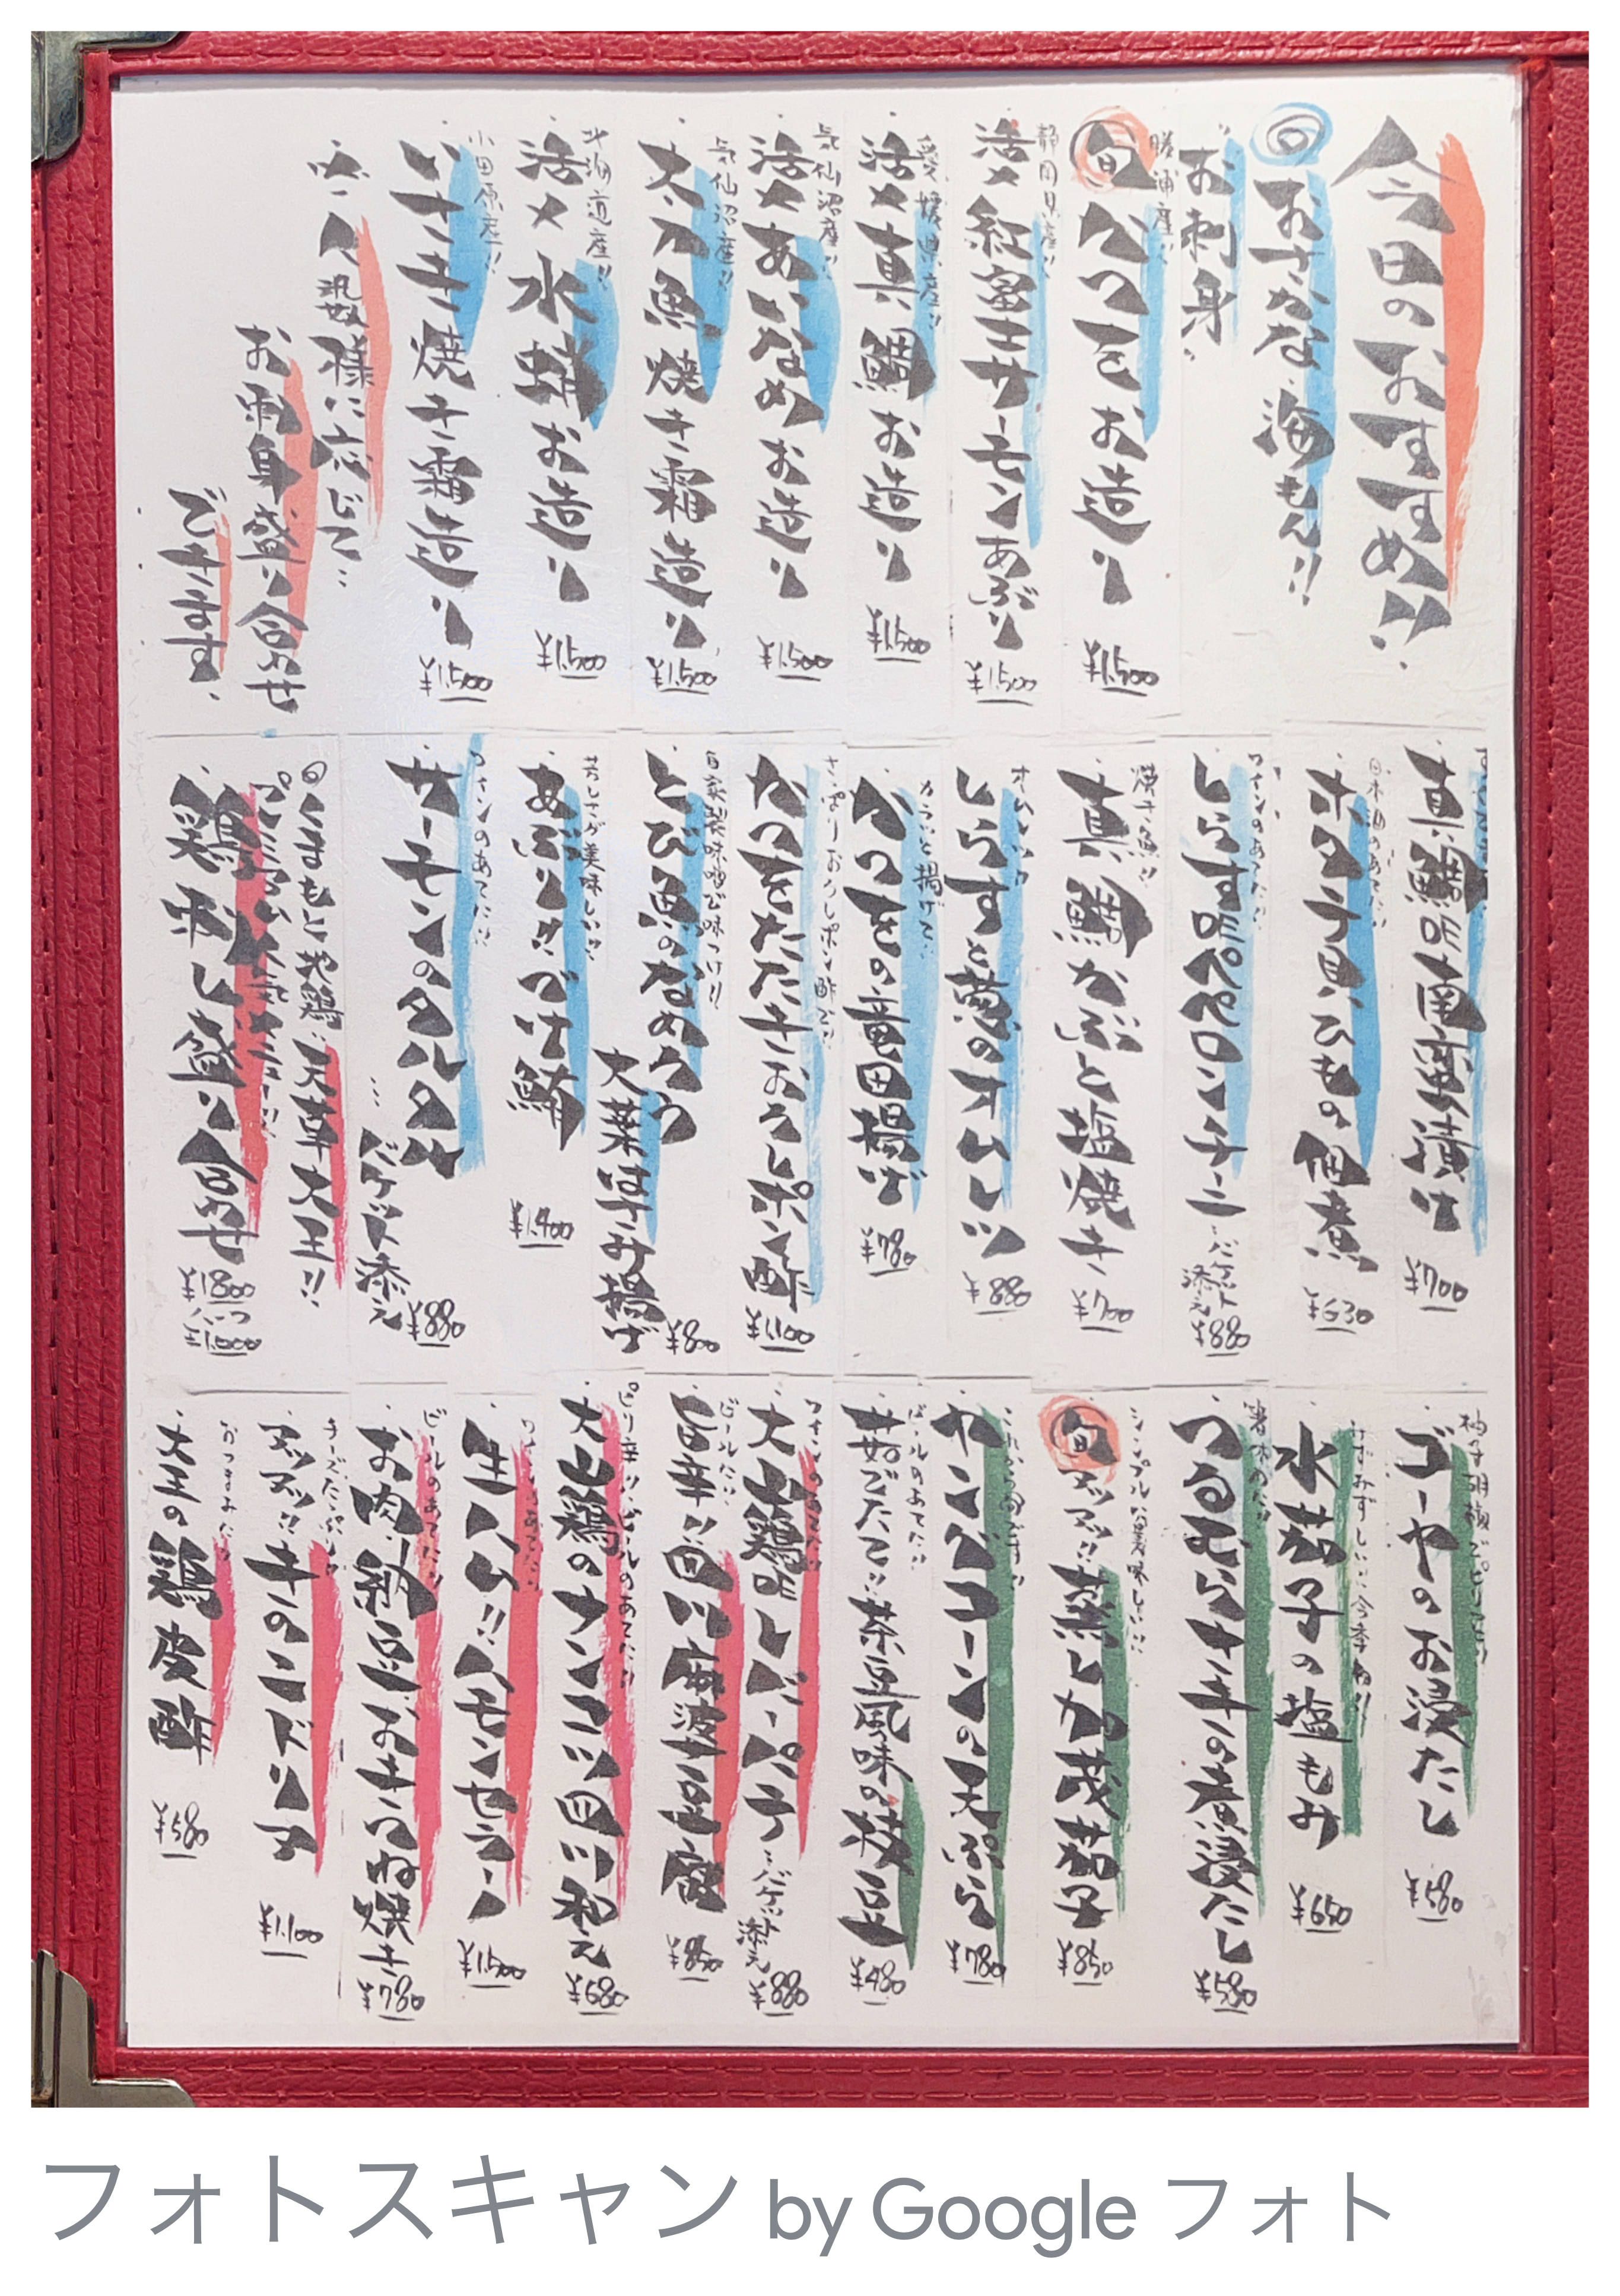 今日のおすすめ!!
◎おさかな、海もん!!
お刺身
勝浦産!!
旬かつをお造り
¥1,500
静岡県産!!
活〆紅富士サーモンあぶり
¥1,500
愛媛県産!!
活〆真鯛お造り
¥1,500
気仙沼産!!
活〆あいなめお造り
¥1,500
気仙沼産!!
どんこ
魚焼き霜造り
¥1,500
北海道産!!
活〆水蛸お造り
¥1,500
小田原産!!
いさき焼き霜造り
¥1,500
人数様に応じて…
お刺身盛り合わせ
できます。
真鯛の南蛮漬け
¥700
日本酒のあてに!!
ホタテ貝ひもの佃煮
¥630
ワインのあてに!!
しらすのペペロンチーニ
…バケット添え
¥880
焼き魚!!
真鯛かぶと塩焼き
¥700
しらすと葱のオムレツ
¥880
カラッと揚げて!!
かつをの竜田揚げ
¥780
さっぱりおろしポン酢で!!
かつをたたきおろしポン酢
¥1,100
自家製味噌で味つけ!!
とび魚のなめろう
大葉はさみ揚げ
¥800
芳しさが美味しい!!
あぶりしべけ鮪
¥1,400
ワインのあてに!!
サーモンのタルタル
…バケット添え
¥880
◎くまもと地鶏、天草大王!!
鶏刺し盛り合わせ
¥1,800
ハーフ
¥1,000
柚子胡椒でピリッと!!
ゴーヤのお浸たし
¥580
みずみずしい!!
水茄子の塩もみ
¥650
箸休めに!!
つるむらさきの煮浸たし
¥580
シンプルな美味しい!!
旬アツアツ!!蒸し加茂茄子
¥850
これからの旬です!!
ヤングコーンの天ぷら
¥780
ビールのあてに!!
茹でたて!!茶豆風味の枝豆
¥480
ワインのあてに!!
大山鶏のレバーパテ
…バケット添え
¥880
ビールに!!
旨辛!!四川麻婆豆腐
¥850
ピリ辛!!ビールのあてに!!
大山鶏のナンコツ四川和え
¥680
ワインのあてに!!
生ハム!!ハモンセラーノ
¥1,500
ビールのあてに!!
お肉、納豆おきつね焼き
¥780
チーズたっぷり!!
アツアツ!!牛のこドリア
¥1,100
おつまみに!!
大王の鶏皮酢
¥580
フォトスキャン by Google フォト